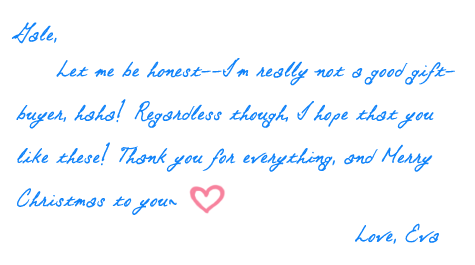 Gale,
Let me be honest--I'm really not a good gift-
buyer, haha! Regardless though, I hope that you
like these! Thank you for everything, and Merry
Christmas to you~
Love, Eva